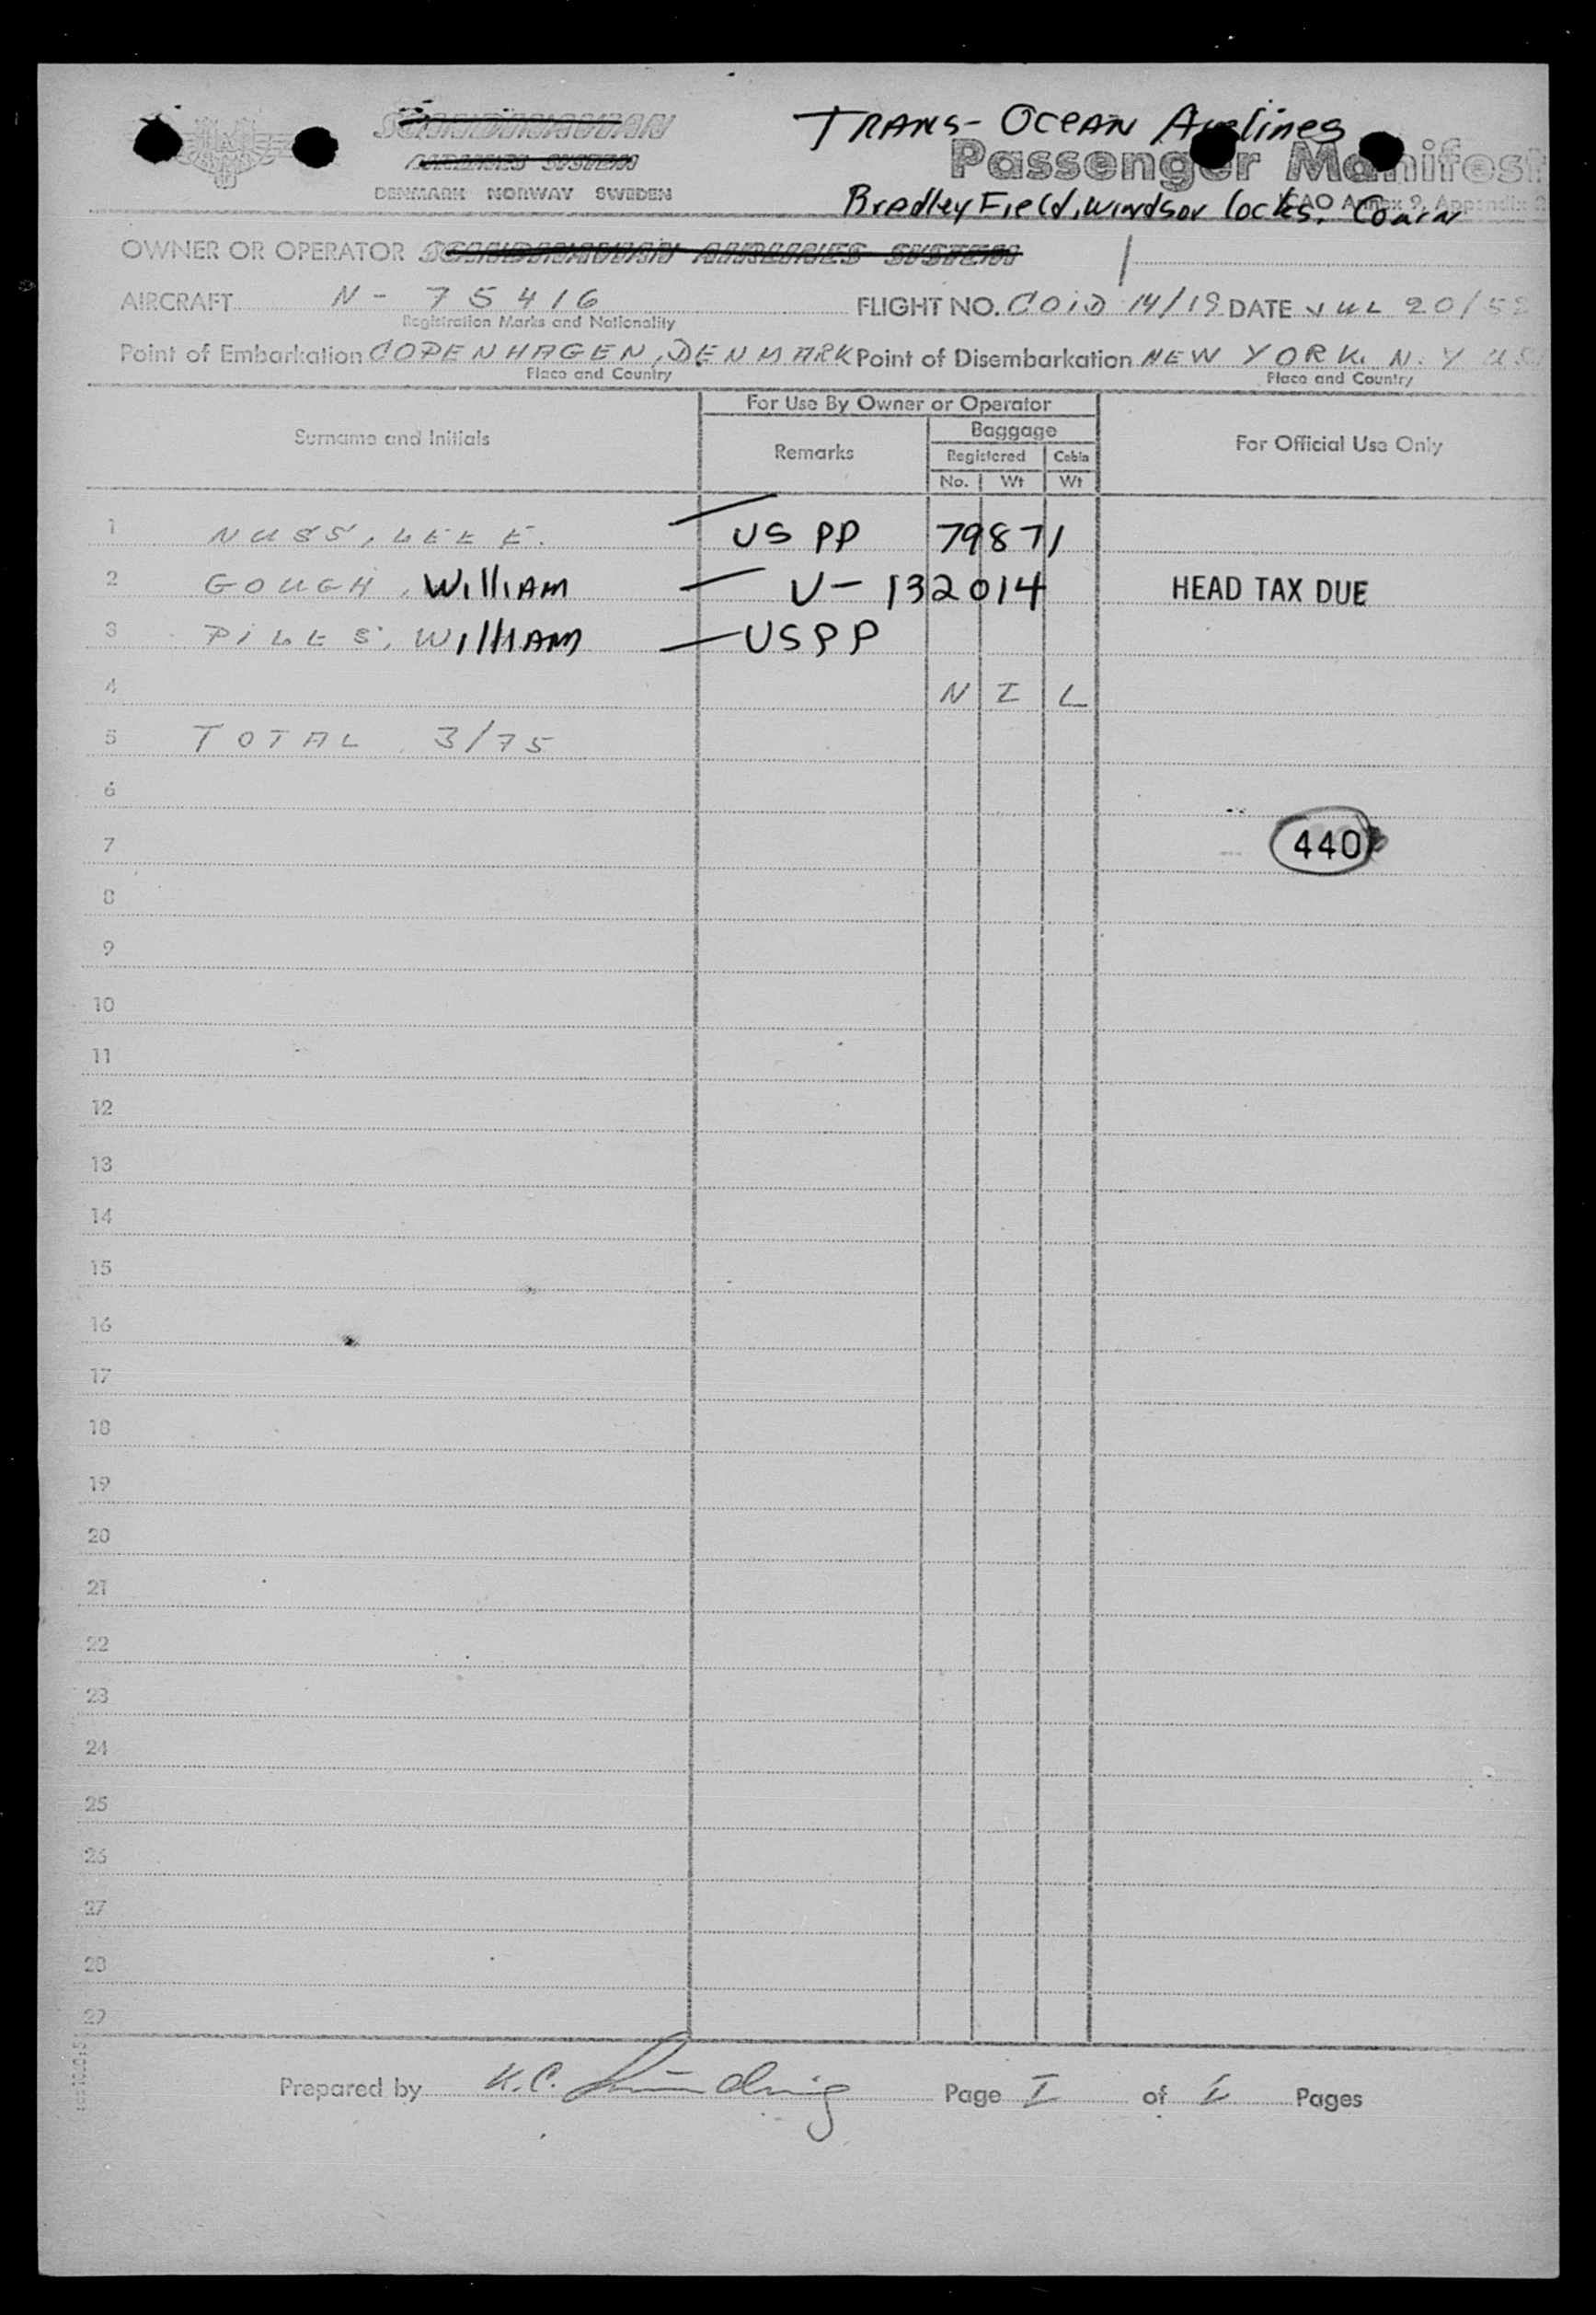 TRANS-OCEAN Airlines
SCANDINAVIAN
AIRLINES SYSTEM
DENMARK NORWAY SWEDEN
Passenger Manifest
ICAO Annex 9, Appendix
Bradley Field, Windsor Locks, Conn
OWNER OR OPERATOR SCANDINAVIAN AIRLINES SYSTEM
AIRCRAFT N-75416 FLIGHT NO. 14/19 DATE JUL 20/52
Registration Marks and Nationality
Point of Embarkation COPENHAGEN, DENMARK Point of Disembarkation NEW YORK. N.Y
Place and Country Place and Country
For Use By Owner or Operator
Surname and Initials Remarks Baggage For Official Use Only
Registered Cabin
No. Wt Wt
1 NUSS, LEE E. US PP 79871
2 GOUGH, William V-132014 HEAD TAX DUE
3 PILES, William USPP
4 NIL
5 TOTAL 3/75
6
7 440
8
9
10
11
12
13
14
15
16
17
18
19
20
21
22
23
24
25
26
27
28
29
Prepared by K.C. Page I of I Pages